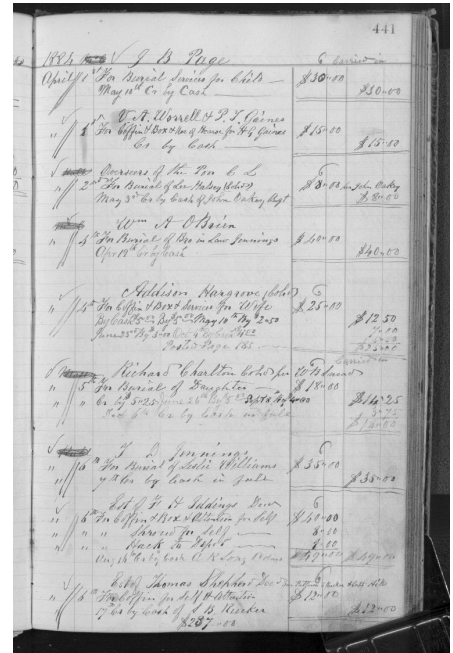 441
1884 J B Page Carried in
April 1st For Burial Services for Child $30-00
May 10th Cr by Cash $30-00
V. A. Worrell & P. T. Gaines
" 1st For Coffin & Box & use of Hearse for H G Gaines $15-00
Cr by Cash $15-00
Overseers of the Poor C L
" 2nd For Burial of Lee Halsey (Cold) $8-00 for John Oakey
May 3rd Cr by Cash of John Oakey Supt $8-00
Wm A OBrien
" 4th For Burial of Bro in Law Jennings $40-00
Apr 19th Cr by Cash $40-00
Addison Hargrove (Cold)
" 4th For Coffin & Box & Services for Wife $25-00
By Cash 5-00 By 5-00 May 10th By 2-50 $12 50
June 23rd By 3-00 4-00
Posted Page 185
Carried in
Richard Charlton Cold for W B
" 5th For Burial of Daughter $18-00
" Cr by 5-25 June 28th By 5-00 Sept 8th By 4-00 $14-25
Dec 6th Cr by Cash in full 3-75
$18-00
T. D. Jennings
" 6th For Burial of Leslie Williams $35-00
7th Cr by Cash in full $35-00
Est of J H Eddings Decd
" 6th For Coffin & Box & Attention for Self $40-00
" " Shroud for Self 6-00
" " Hack to Depot
Aug 14th Cr by Cash $49-00 $49-00
Est of Thomas Shepherd Decd
" 6th For Coffin for Self & Attention $12-00
17th Cr by Cash of S B $12-00
$237-00